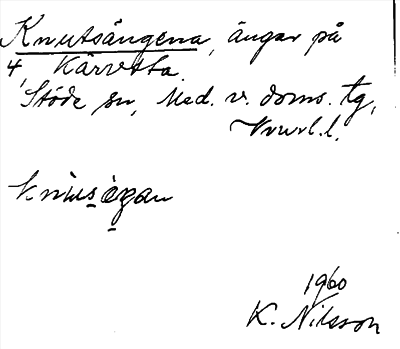 Knutsängena, ängar på
4, Kärvsta.
Stöde sn, Med. v. doms. tg,
1960
K. Nilsson